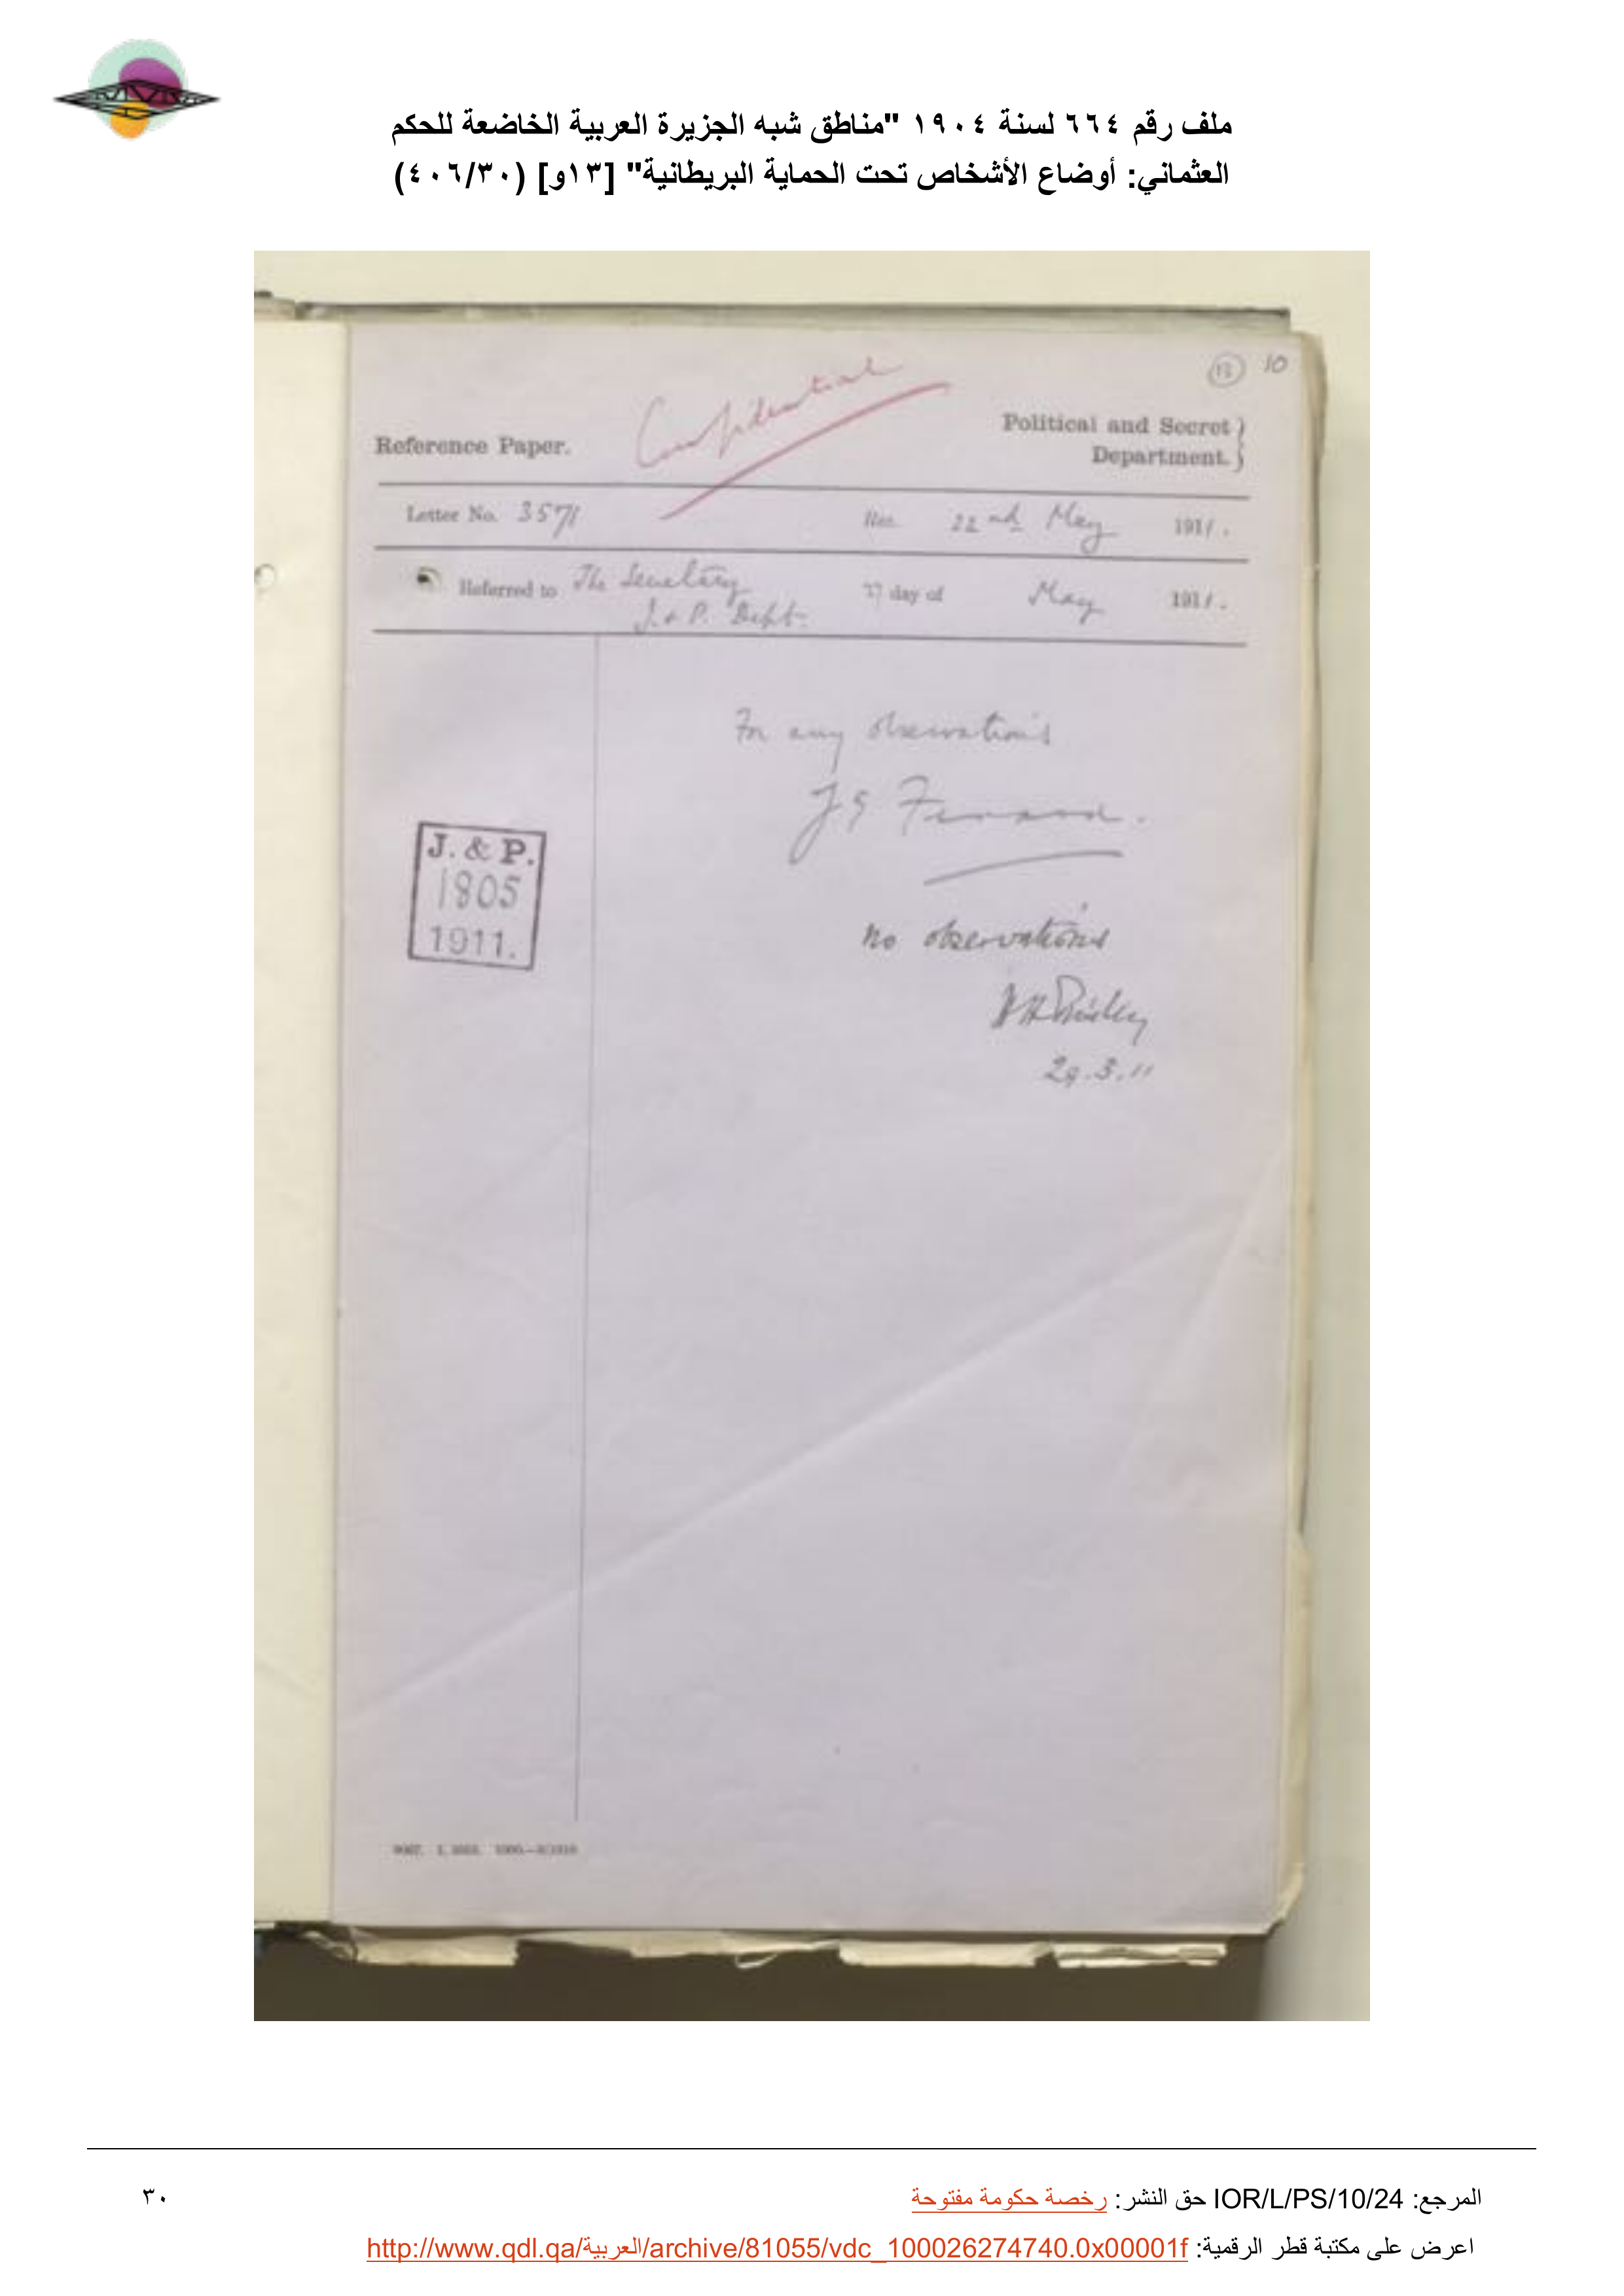 ملف رقم ٦٦٤ لسنة ١٩٠٤ "مناطق شبه الجزيرة العربية الخاضعة للحكم
العثماني: أوضاع الأشخاص تحت الحماية البريطانية" [١٣و] (٤٠٦/٣٠)
13 10
Confidential
Political and Secret
Reference Paper.
Department.
Letter No. 3571 Rec. 22nd May 1911.
Referred to The Secretary 27 day of May 1911.
J. & P. Dept.
For any observations
J. & P.
1805
1911.
No observations
29.3.11
المرجع: IOR/L/PS/10/24 حق النشر: رخصة حكومة مفتوحة
٣٠
اعرض على مكتبة قطر الرقمية: http://www.qdl.qa/العربية/archive/81055/vdc_100026274740.0x00001f